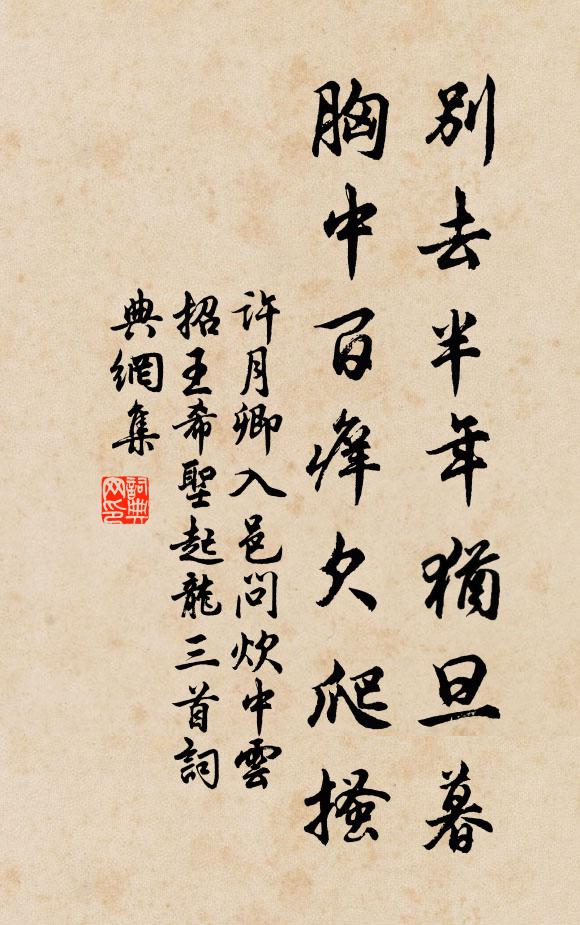 別去半年猶旦暮
胸中百癢欠爬搔
許月卿入邑問炊中雲
招王希聖起龍三首詞
典網集
詞典网印